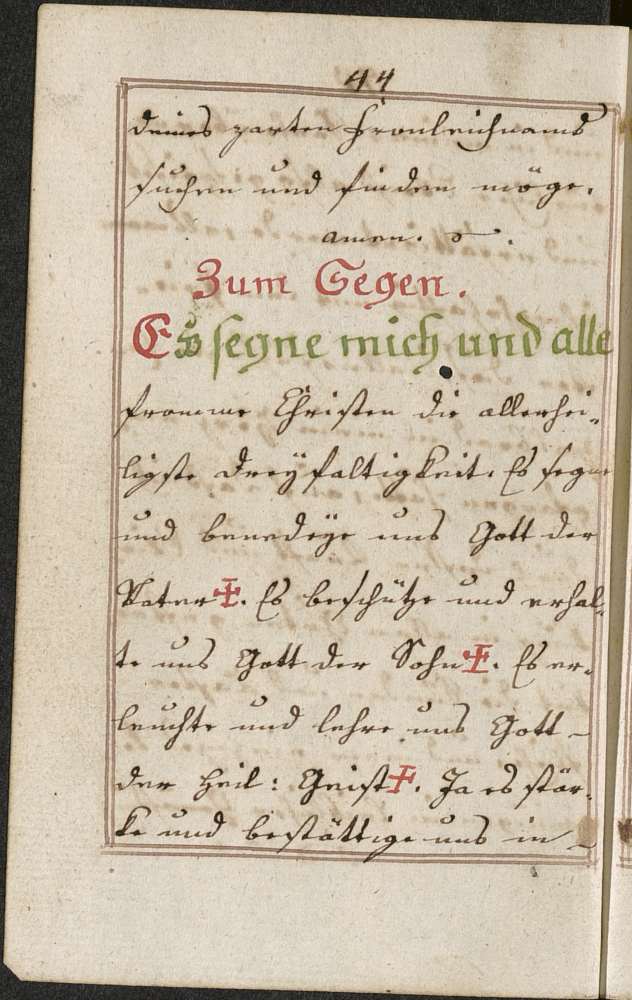 44
deines zarten Fronleichnams
suchen und finden möge.
amen.
Zum Segen.
Es segne mich und alle
fromme Christen die allerhei-
ligste Dreyfaltigkeit. Es segne
und benedeye uns Gott der
Vater ✠. Es beschütze und erhal-
te uns Gott der Sohn ✠. Es er-
leuchte und lehre uns Gott -
der Heil: Geist ✠. Ja es stär-
ke und bestättige uns in -